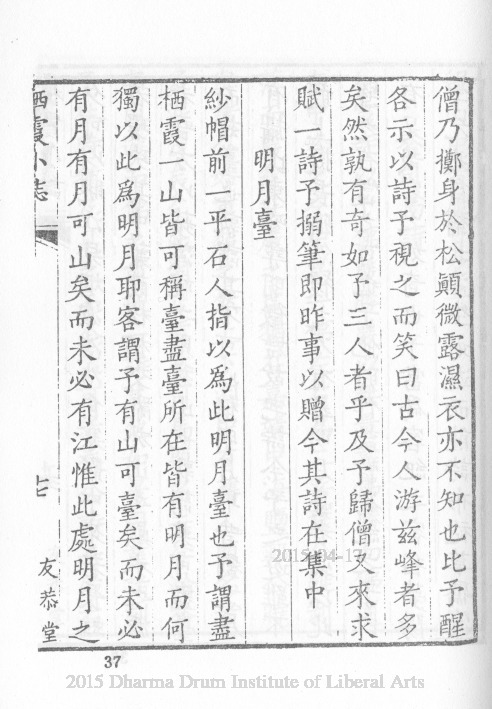 僧乃擲身於松顛微露濕衣亦不知也比予醒
各示以詩予視之而笑曰古今人游茲峰者多
矣然孰有奇如予三人者乎及予歸僧又來求
賦一詩予搦筆即昨事以贈今其詩在集中
明月臺
紗帽前一平石人指以為此明月臺也予謂盡
栖霞一山皆可稱臺盡臺所在皆有明月而何
獨以此為明月耶客謂予有山可臺矣而未必
有月有月可山矣而未必有江惟此處明月之
栖霞小志
十七
友恭堂
37
2015-04-17
2015 Dharma Drum Institute of Liberal Arts